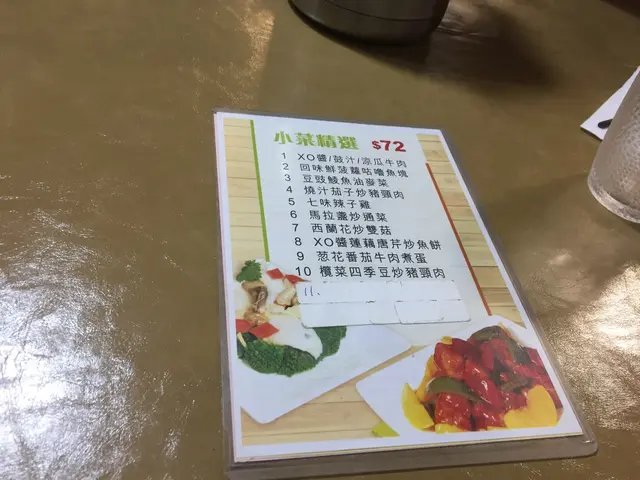 小菜精選 $72
1 XO醬/鼓汁/涼瓜牛肉
2 回味鮮菠蘿咕嚕魚塊
3 豆豉鯪魚油麥菜
4 燒汁茄子炒豬頸肉
5 七味辣子雞
6 馬拉盞炒通菜
7 西蘭花炒雙菇
8 XO醬蓮藕唐芹炒魚餅
9 葱花番茄牛肉煮蛋
10 欖菜四季豆炒豬頸肉
11.